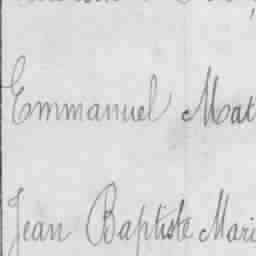 Emmanuel Mat
Jean Baptiste Mari